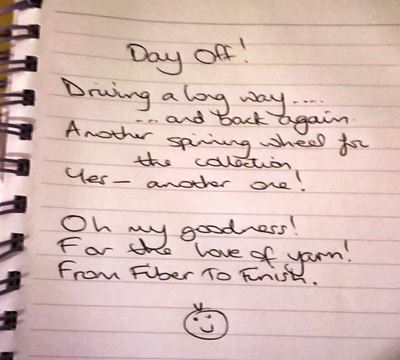 Day Off!
Driving a long way....
...and back again.
Another spinning wheel for
the collection
Yes - another one!
Oh my goodness!
For the love of yarn!
From Fiber To Finish.